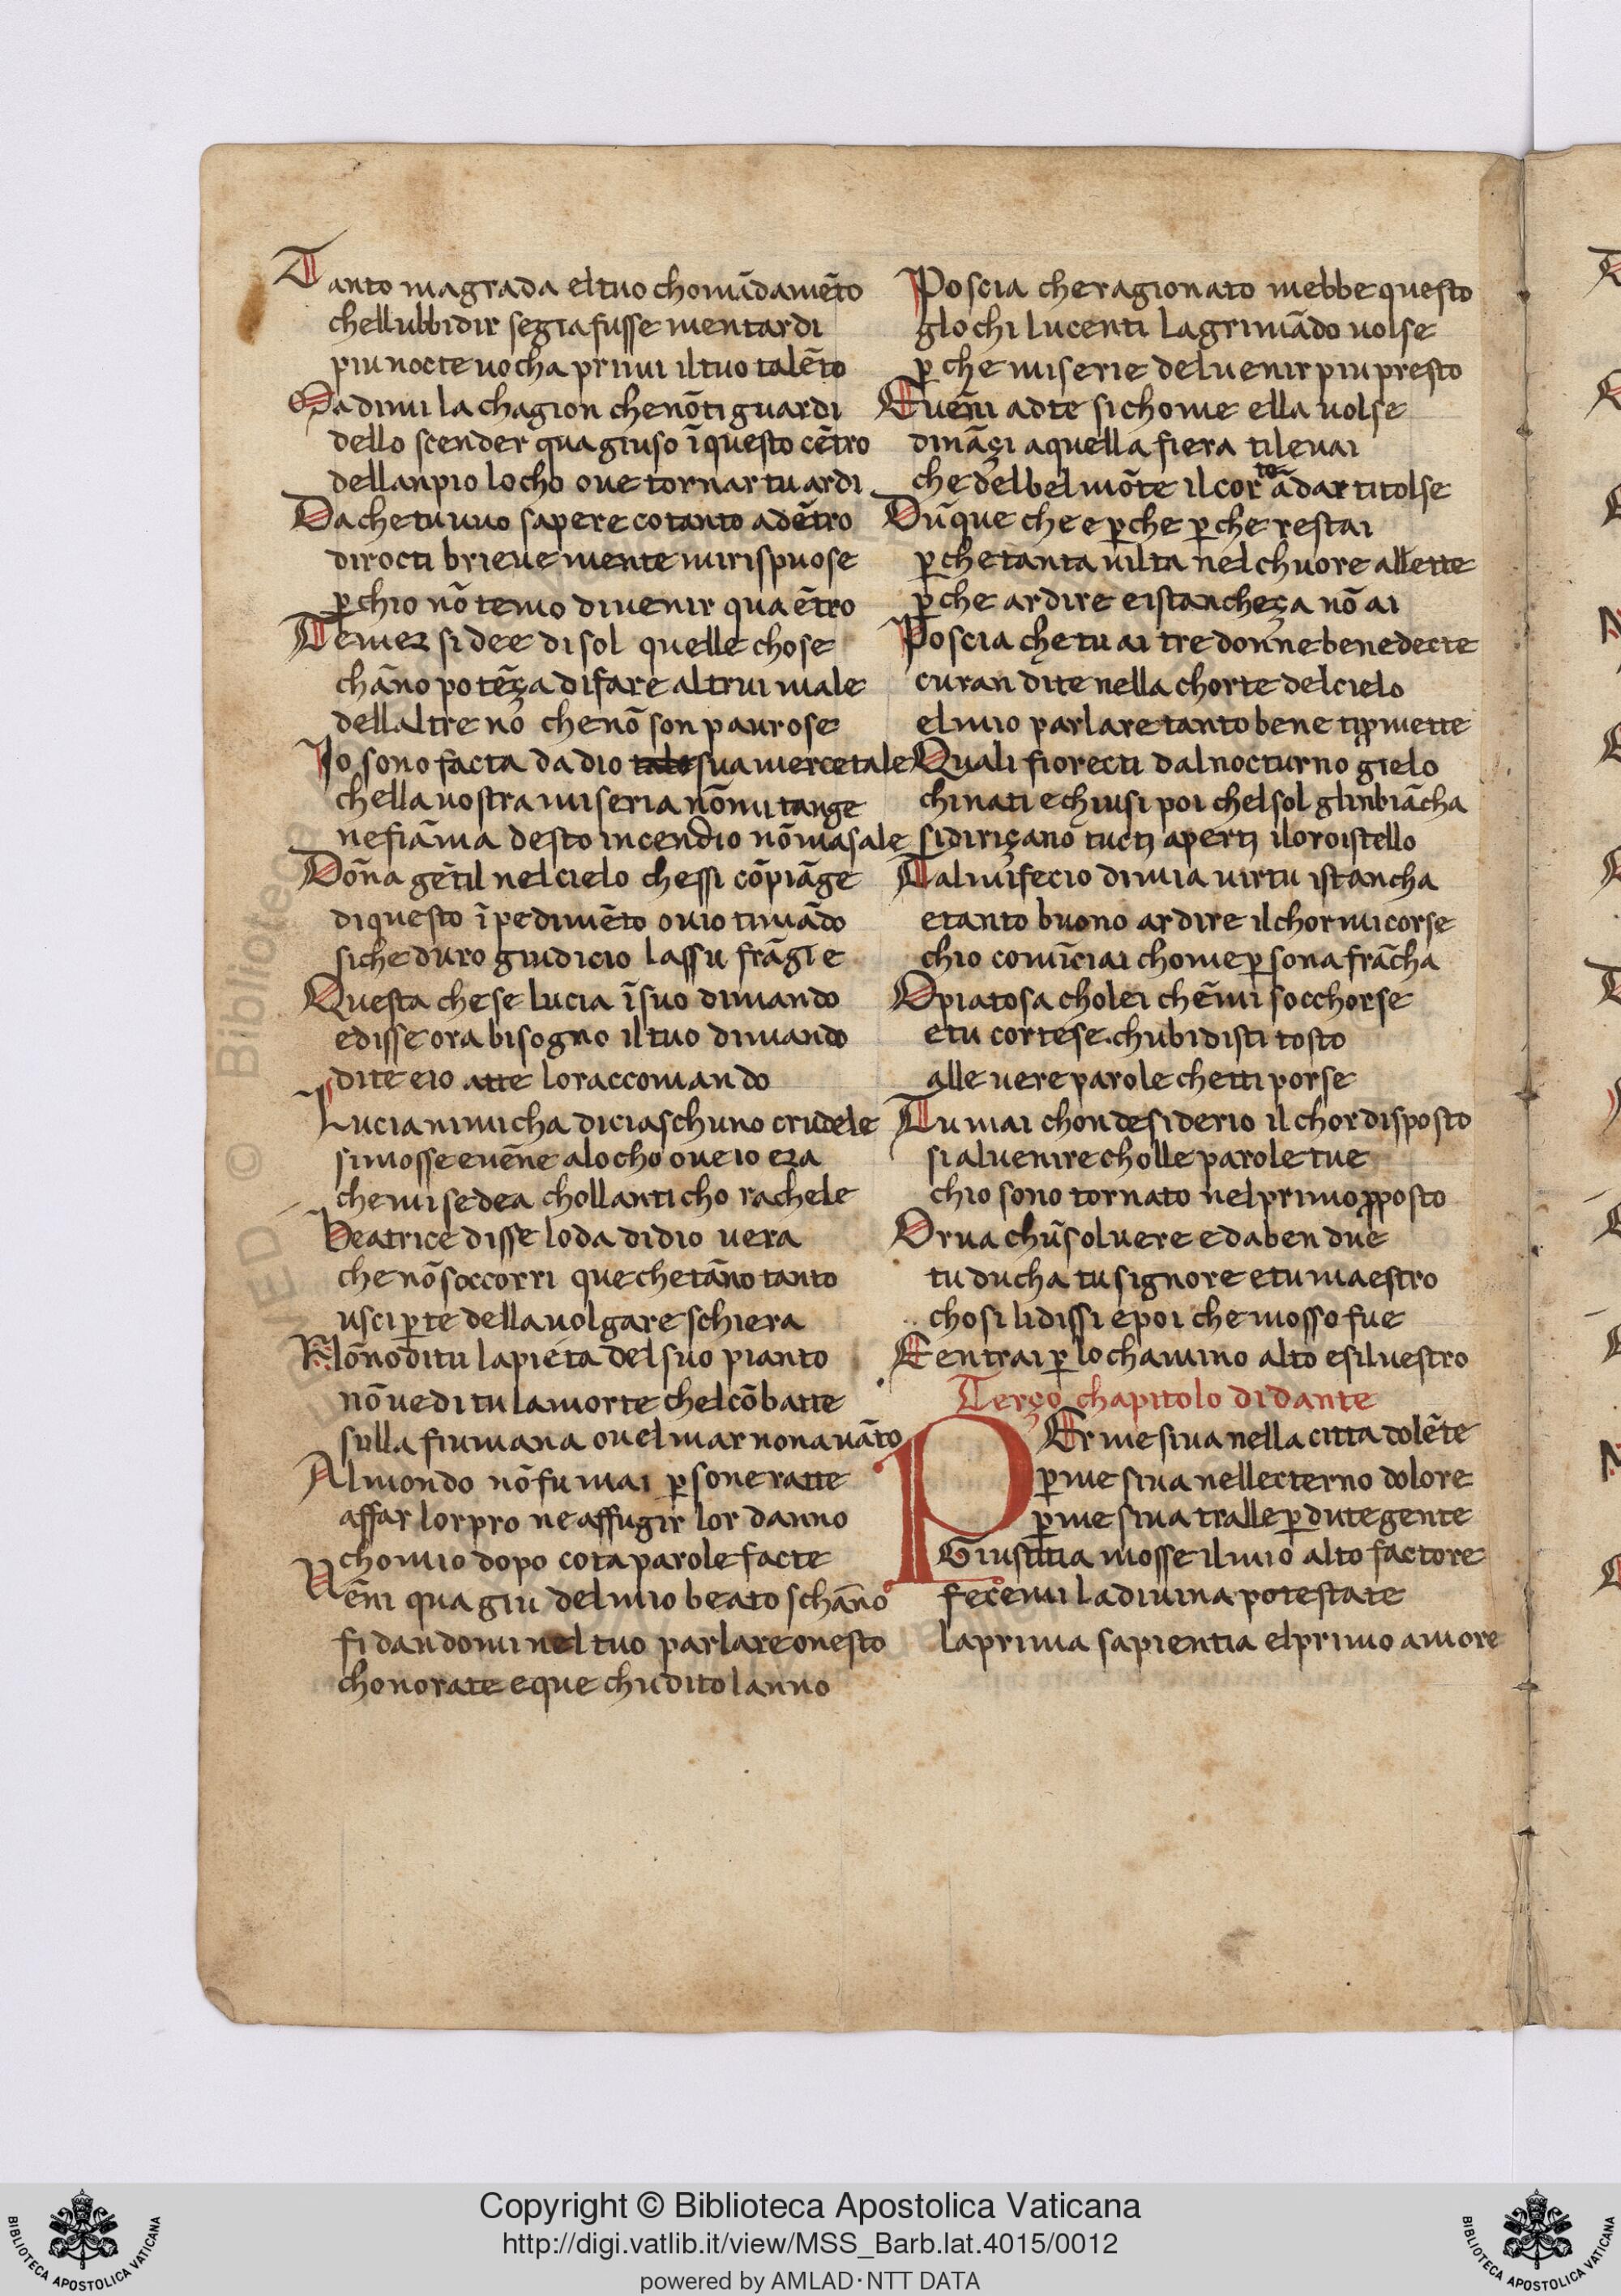 Tanto magrada eltuo chomādamēto
chellubbidir segiafusse mentardi
piu nocte uo cha primi iltuo talēto
Ma dimi la chagion chenōti guardi
dello scender qua giuso ī questo cētro
dellanpio locho oue tornar tu ardi
Da che tu uuo sapere cotanto adētro
dirocti brieue mente mirispuose
ꝑchio nō temo diuenir qua ētro
Temer si dee di sol quelle chose
chāno potēça difare altrui male
dellaltre nō chenō son paurose
Io sono facta da dio sua merce tale
chella uostra miseria nōmi tange
ne fiāma desto incendio nōmasale
Dōna gētil nel cielo chessi cōpiāge
di questo īpedimēto ouio timādo
siche duro giudicio lassu frāgie
Questa chese lucia ī suo dimando
e disse ora bisogno iltuo dimando
di te eio atte loraccomando
Lucia nimicha di ciaschuno crudele
simosse euēne alocho oue io era
chemi sedea chollanticho rachele
Beatrice disse loda didio uera
che nō soccorri que chetāno tanto
usci ꝑte della uolgare schiera
Nōnoditu la pieta del suo pianto
nō uedi tu la morte chelcōbatte
sulla fiumana ouelmar nonauāto
Al mondo nō fu mai ꝑsone ratte
affar lor pro ne affugir lor danno
chomio dopo cota parole facte
Uēni qua giu delmio beato schāno
fidandomi nel tuo parlare onesto
chonorate e que chudito lanno
Poscia che ragionato mebbe questo
glochi lucenti lagrimādo uolse
ꝑche miserie deluenir piu presto
E uēni adte sichome ella uolse
dināçi aquella fiera tileuai
che delbelmōte ilcorto ādar titolse
Dūque che e ꝑche ꝑche restai
ꝑche tanta uilta nel chuore allette
ꝑche ardire eistancheça nō ai
Poscia che tu ai tre donne benedecte
curan dite nella chorte delcielo
elmio parlare tanto bene tiꝓmette
Quali fiorecti dal nocturno gielo
chinati e chiusi poi chelsol glinbiācha
sidiriçano tucti aperti iloroistello
Talmifecio dimia uirtu istancha
etanto buono ardire ilchor micorse
chio comīciai chome ꝑsona frācha
O piatosa cholei chēmi socchorse
etu cortese chubidisti tosto
alle uere parole chetti porse
Tu mai chon desiderio il chor disposto
si aluenire cholle parole tue
chio sono tornato nelprimo ꝓposto
Or ua chū sol uere e daben due
tu ducha tu signore etu maestro
chosi lidissi e poi che mosso fue
E entrai ꝑ lo chamino alto esiluestro
Terço chapitolo di dante
PEr me siua nella citta dolēte
ꝑme siua nelleterno dolore
ꝑme siua tralle ꝑdute gente
Giustitia mosse ilmio alto factore
fecemi la diuina potestate
la prima sapientia elprimo amore
Copyright © Biblioteca Apostolica Vaticana
http://digi.vatlib.it/view/MSS_Barb.lat.4015/0012
powered by AMLAD·NTT DATA
BIBLIOTECA APOSTOLICA VATICANA
BIBLIOTECA APOSTOLICA VATICANA